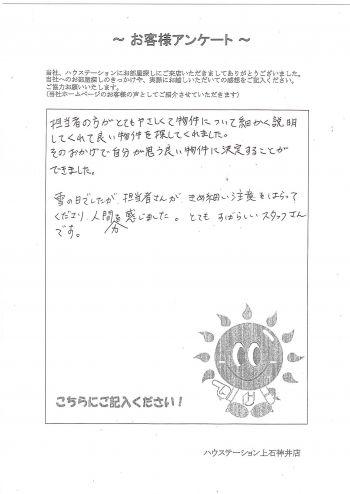 ～ お客様アンケート ～
当社、ハウステーションにお部屋探しにご来店いただきましてありがとうございました。
当社へのお部屋探しのきっかけや、実際にお越しいただいての感想をご記入ください。
ご協力お願いします。
（当社ホームページのお客様の声としてご紹介させていただきます）
担当者の方がとてもやさしくて物件について細かく説明
してくれて良い物件を探してくれました。
そのおかげで自分が思う良い物件に決定することが
できました。
雪の日でしたが 担当者さんが きめ細い注意をはらって
くださり 人間力を感じました。とても すばらしい スタッフさん
です。
こちらにご記入ください！
ハウステーション上石神井店